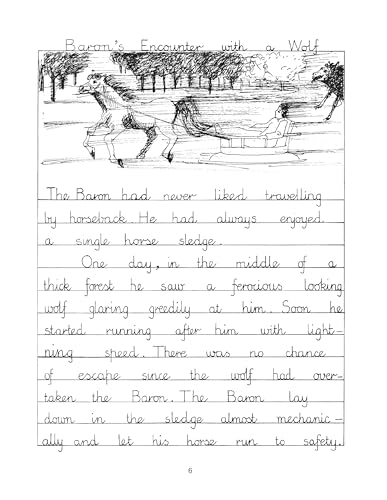 Baron's Encounter with a Wolf
The Baron had never liked travelling
by horseback. He had always enjoyed
a single horse sledge.
One day, in the middle of a
thick forest he saw a ferocious looking
wolf glaring greedily at him. Soon he
started running after him with light-
ning speed. There was no chance
of escape since the wolf had over-
taken the Baron. The Baron lay
down in the sledge almost mechanic-
ally and let his horse run to safety.
6